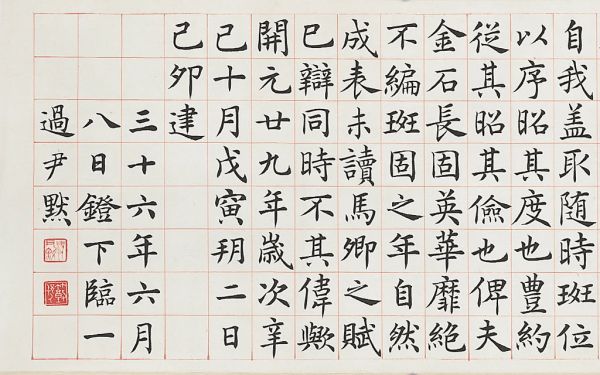 自我盖耴随時斑位
以序昭其度也豊約
從其昭其儉也俾夫
金石長固英華靡絕
不編斑固之年自然
成表未讀馬卿之賦
已辯同時不其偉歟
開元廿九年歲次辛
已十月戊寅朔二日
己卯建
三十六年六月
八日鐙下臨一
過尹默